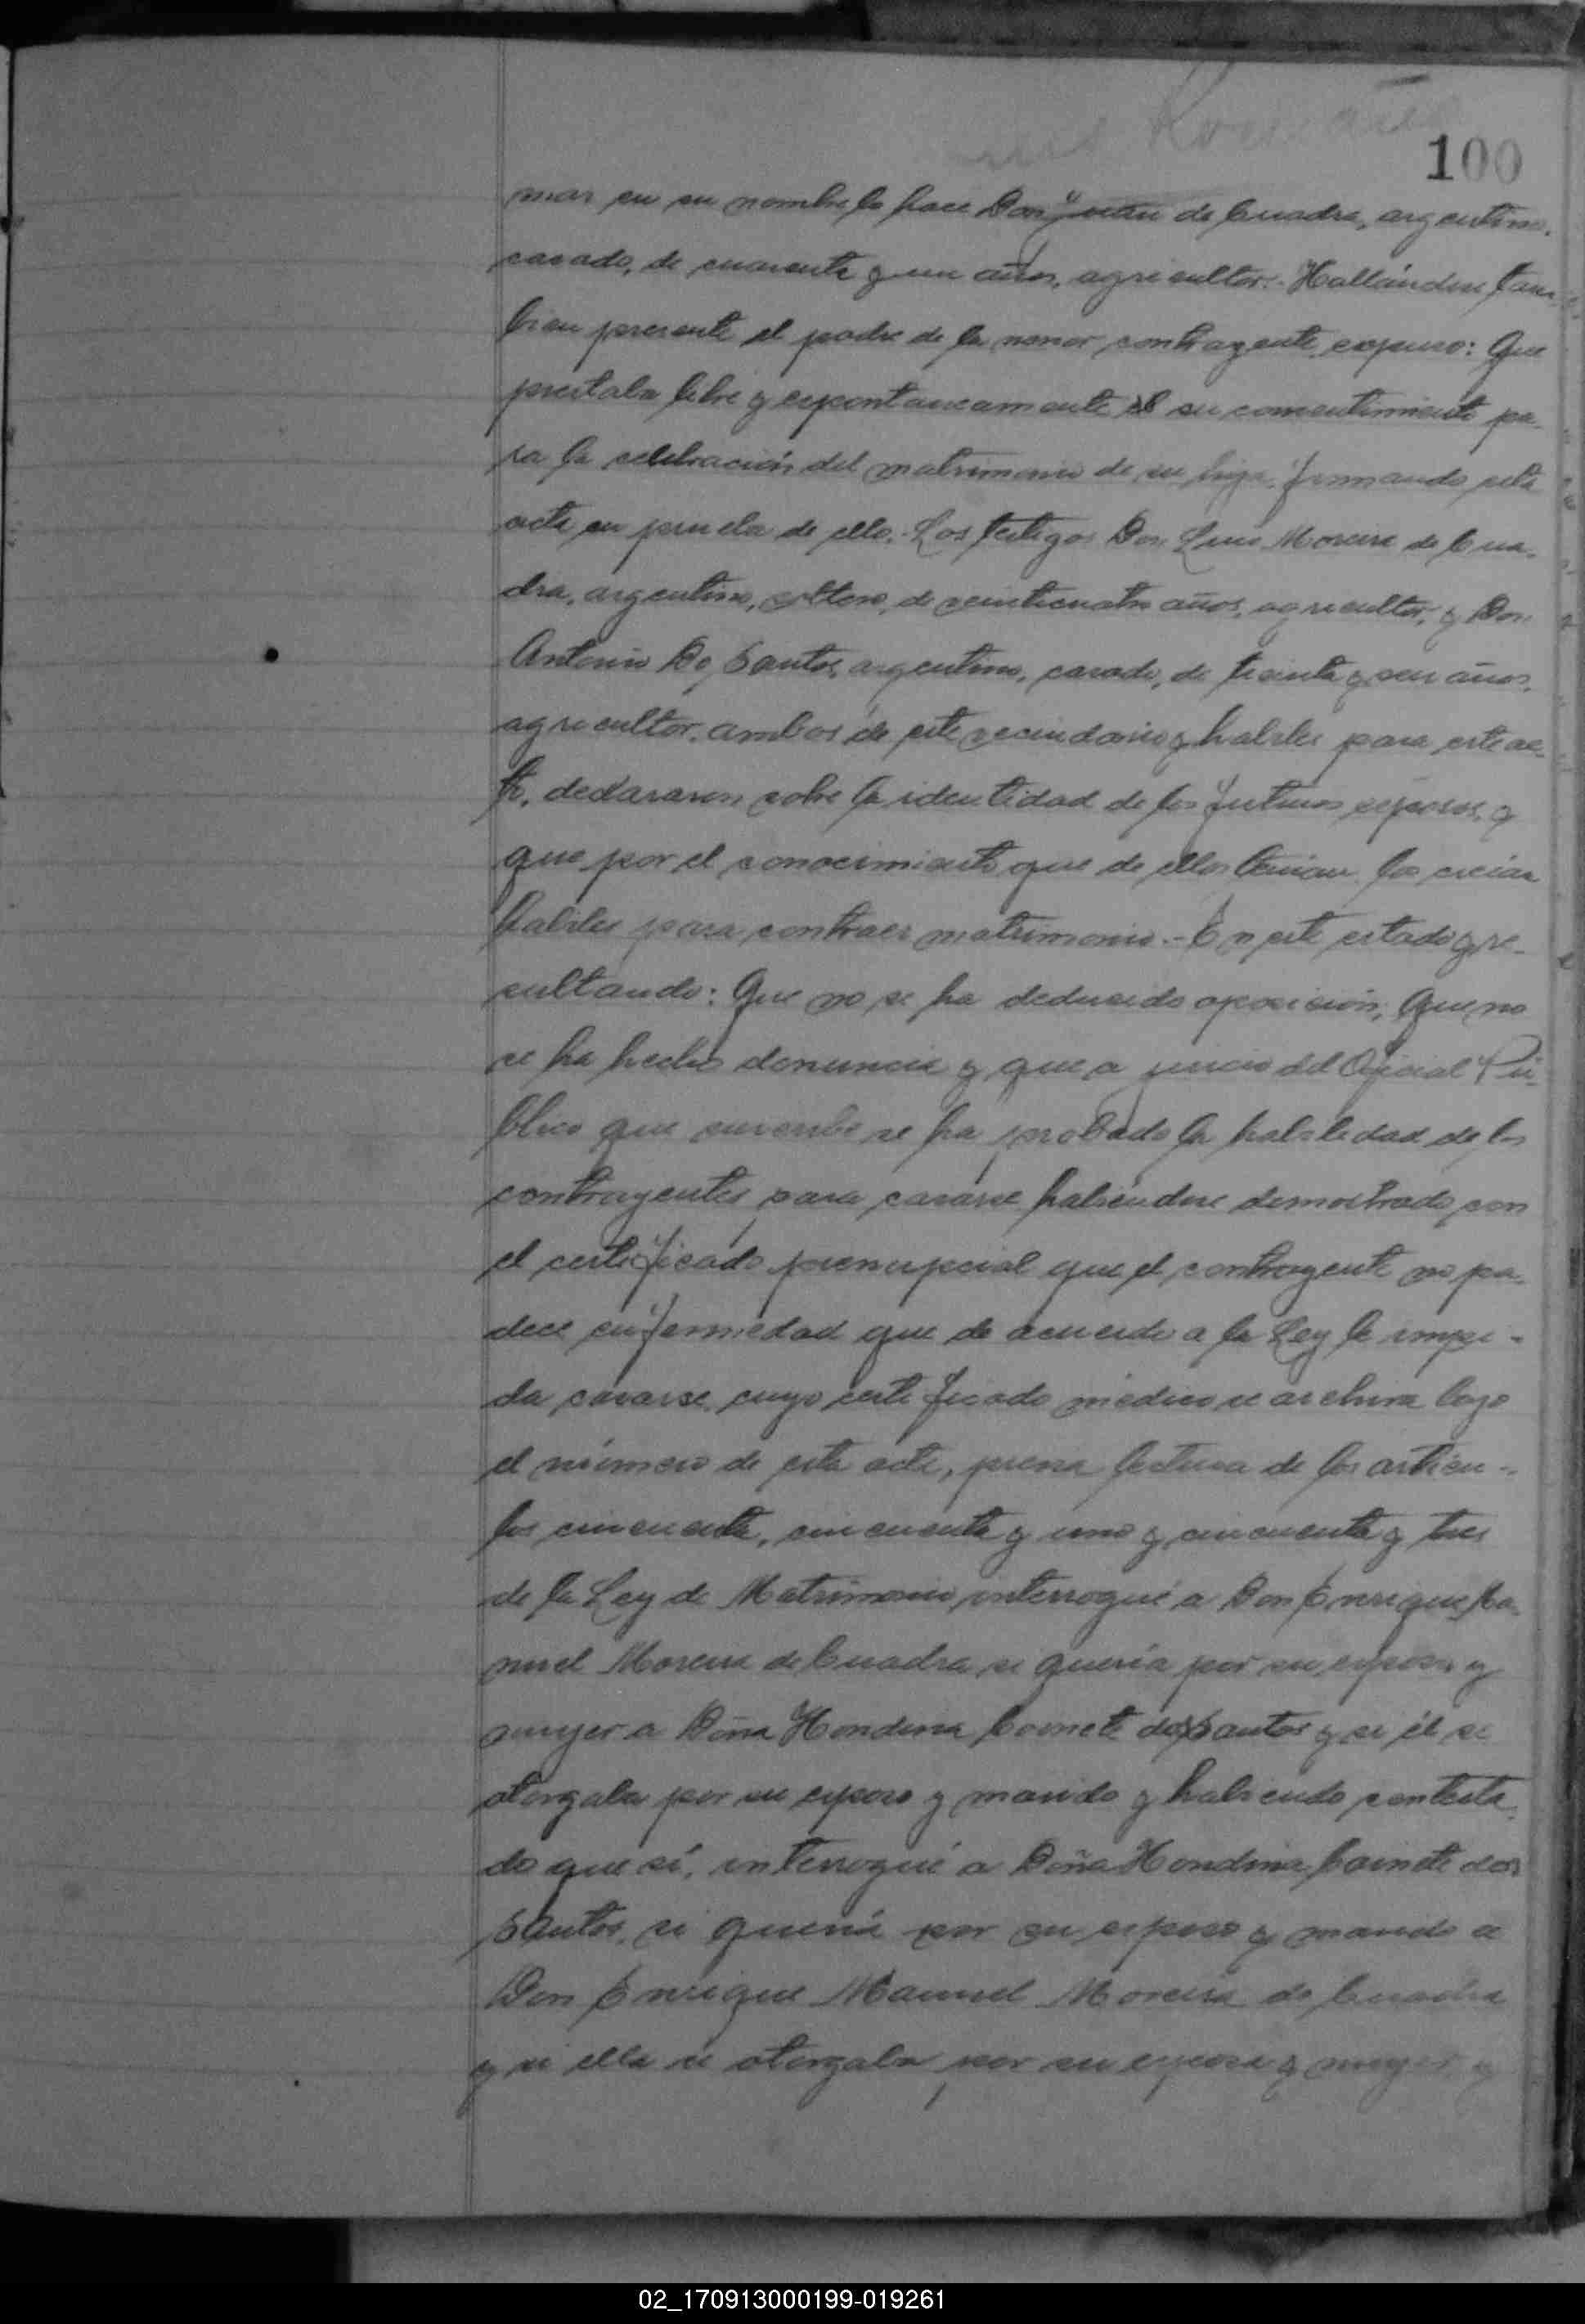 100
mar en su nombre lo hace Don Juan de Cuadra, argentino,
casado, de cuarenta y un años, agricultor.- Hallándose tam-
bien presente el padre de la menor contrayente expuso: Que
prestaba libre y espontaneamente su consentimiento pa-
ra la celebración del matrimonio de su hija, firmando esta
acta en prueba de ello.- Los testigos Don Luis Moreira de Cua-
dra, argentino, soltero, de veinticuatro años, agricultor, y Don
Antonio Do Santos, argentino, casado, de treinta y seis años,
agricultor, ambos de este vecindario y habiles para este ac-
to, declararon sobre la identidad de los futuros esposos, y
que por el conocimiento que de ellos tenian los creian
habiles para contraer matrimonio.- En este estado y re-
sultando: Que no se ha deducido oposición; Que no
se ha hecho denuncia y que a juicio del Oficial Pú-
blico que suscribe se ha probado la habilidad de los
contrayentes para casarse habiéndose demostrado con
el certificado prenupcial que el contrayente no pa-
dece enfermedad que de acuerdo a la Ley le impi-
da casarse, cuyo certificado médico se archiva bajo
el número de esta acta, previa lectura de los artícu-
los cincuenta, cincuenta y uno y cincuenta y tres
de la Ley de Matrimonio interrogué a Don Enrique Ma-
nuel Moreira de Cuadra si quería por su esposa y
mujer a Doña Hondina dos Santos y si él se
otorgaba por su esposo y marido y habiendo contesta-
do que sí, interrogué a Doña Hondina dos
Santos, si quería por su esposo y marido a
Don Enrique Manuel Moreira de Cuadra
y si ella se otorgaba por su esposa y mujer, y
02_170913000199-019261